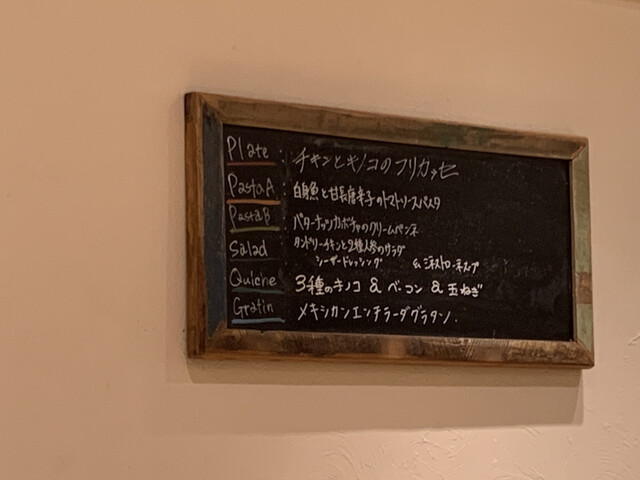 Plate : チキンとキノコのフリカッセ
Pasta A : 白身魚と甘長唐辛子のトマトソースパスタ
Pasta B : バターナッツカボチャのクリームペンネ
Salad : タンドリーチキンと2種人参のサラダ
シーザードレッシング & ミネストローネスープ
Quiche : 3種のキノコ & ベーコン & 玉ねぎ
Gratin : メキシカンエンチラーダグラタン.